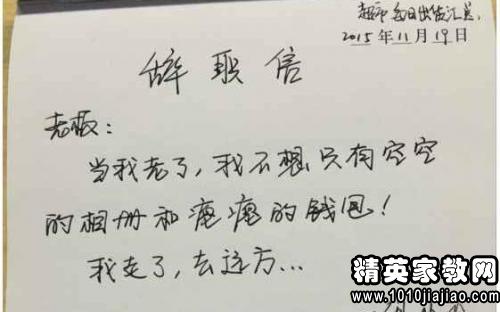 超市每日出货汇总
2015年11月19日
辞职信
老板：
当我老了，我不想只有空空
的相册和瘪瘪的钱包！
我走了，去远方...
精英家教网
www.1010jiajiao.com